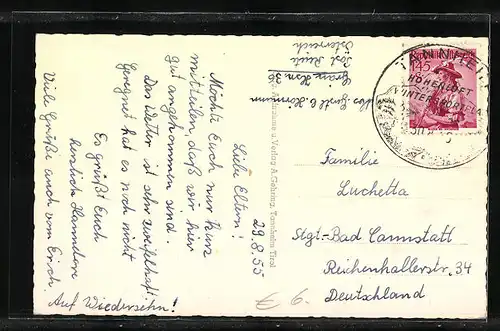 29.8.55
Liebe Eltern!
Möchte Euch nur kurz
mitteilen, daß wir hier
gut angekommen sind.
Das Wetter ist sehr zweifelhaft.
Geregnet hat es noch nicht
Es grüßt Euch
herzlich Hannelore
Viele Grüße auch vom Erich.
Auf Wiedersehn!
Grän Hsn 36
Post Reutte
Österreich
Aufnahme u. Verlag A. Gehring, Tannheim Tirol
TANNHEIM
HÖHENLUFT
WINTERSPORTPLATZ
145
Familie
Luchetta
Stgt-Bad Cannstatt
Reichenhallerstr. 34
Deutschland
6.